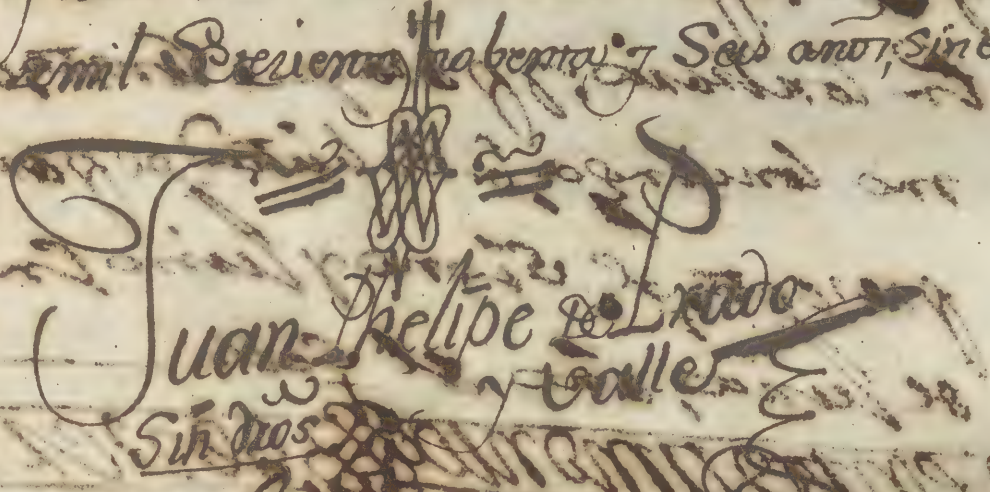 mil Setecientos nobenta y Seis anos; Sin
Juan Phelipe De Prado
y Ovalle
Sin dros